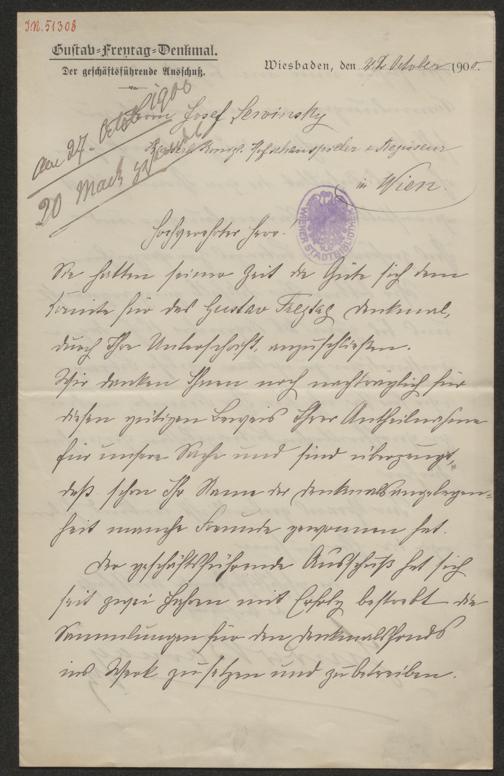 J.N. 51308
Gustav-Freytag-Denkmal.
Der geschäftsführende Ausschuß.
Wiesbaden, den 22 October 1900.
Am 27. October 1900
20 Mark gesandt
Herrn Josef Lewinsky
Hofschauspieler u Regisseur
in Wien.
WIENER STADTBIBLIOTHEK
Hochgeehrter Herr.
Sie hatten seiner Zeit die Güte sich dem
Comite für das Gustav Freytag Denkmal,
durch Ihre Unterschrift, anzuschließen.
Wir danken Ihnen noch nachträglich für
diesen gütigen Beweis Ihrer Antheilnahme
für unsere Sache und sind überzeugt,
daß schon Ihr Name der Denkmalsangelegen-
heit manche Freunde gewonnen hat.
Der geschäftsführende Ausschuß hat sich
seit zwei Jahren mit Erfolg bestrebt die
Sammlungen für den Denkmalsfonds
ins Werk zu setzen und zu betreiben.